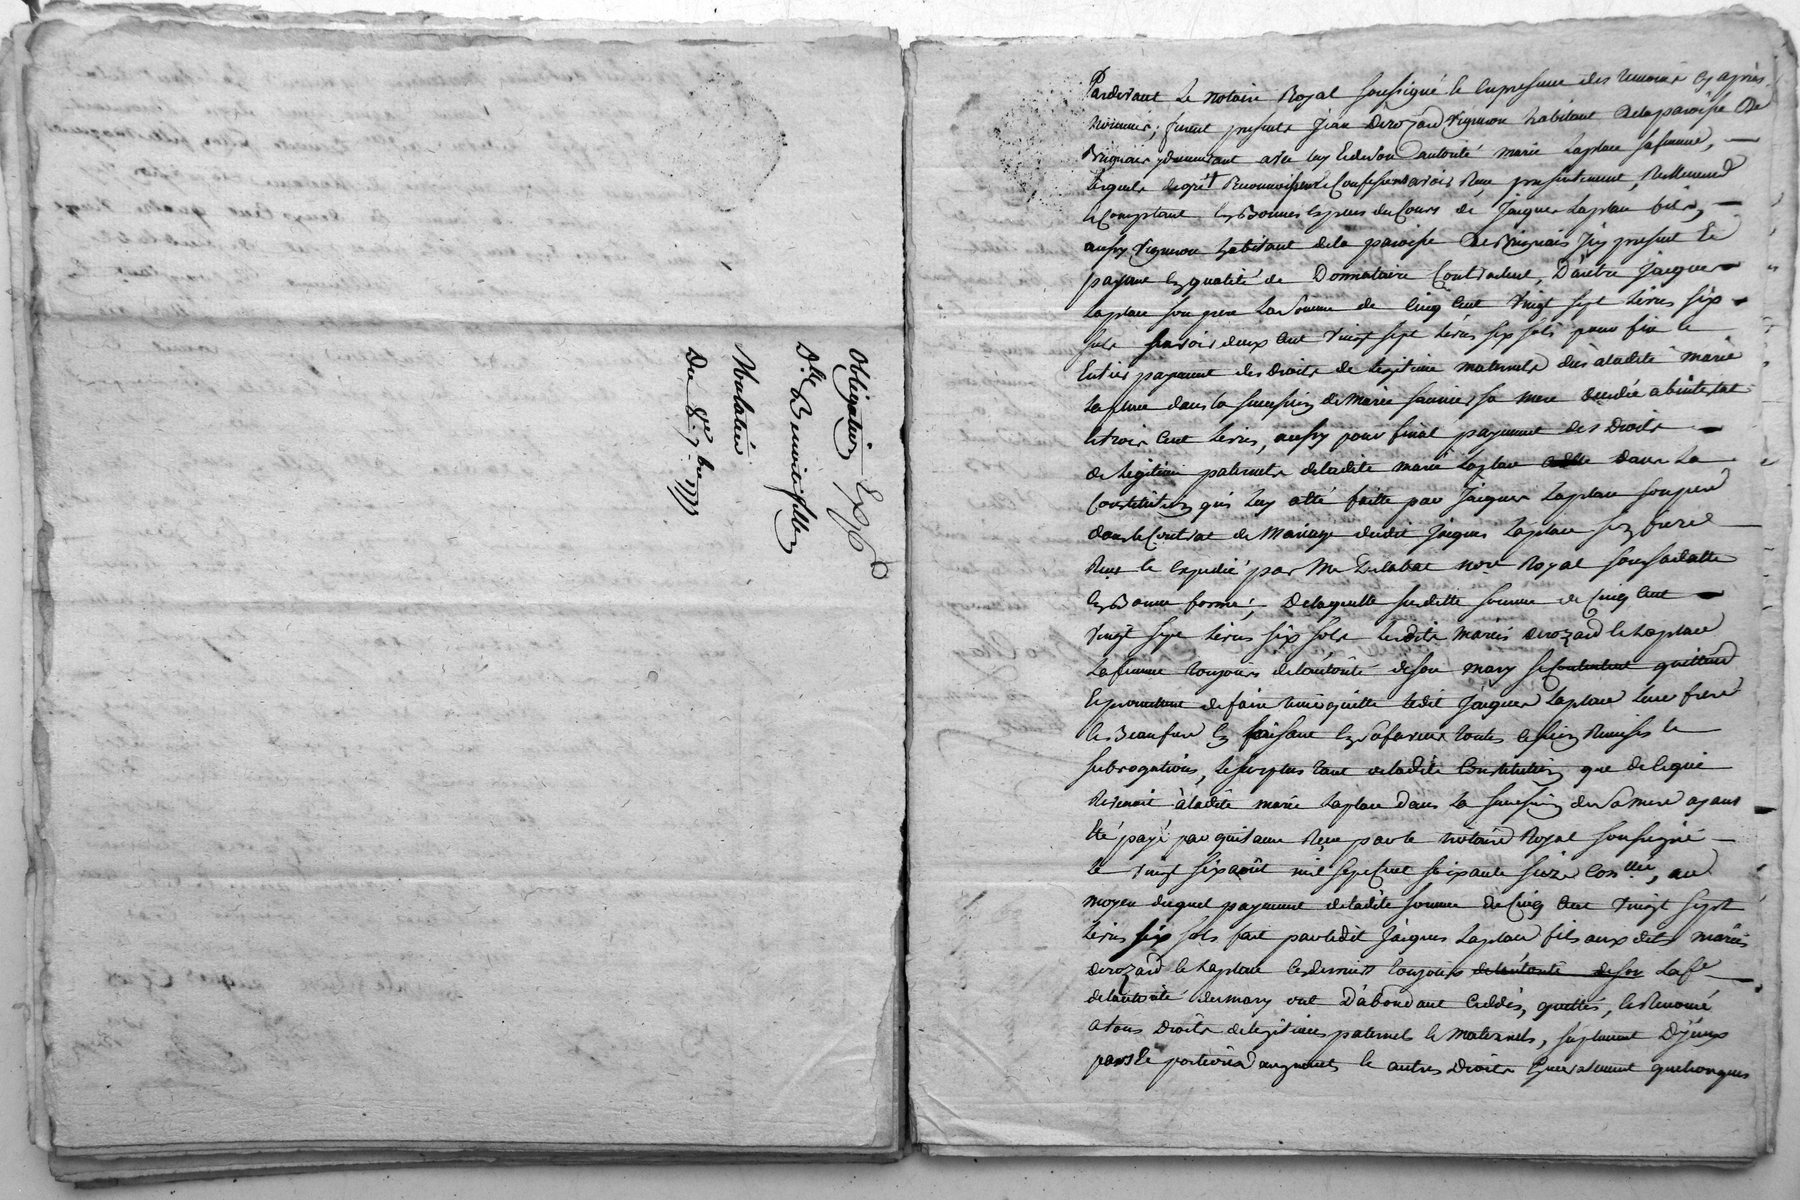 Obligation Exp
Dlle Benoite fillion
Mulatier
Du 8e 7bre 1777
Pardevant Le notaire Royal soussigné et en presence des temoins cy après
Nommés, furent presents Jean Derozard Vigneron habitant dela paroisse De
Brignais et demeurant avec luy et de son autorité marie Laplace sa femme,
Lesquels degré Reconnoissent et Confessent avoir Reçu presentement, Reellement
et Comptant en Bonnes Espèces du Cours de Jacques Laplace fils,
aussy vigneron habitant dela paroisse de Brignais Icy present et
payant en qualité de Donnataire Contractuel, D'autre Jacques
Laplace son pere La Somme de Cinq Cent Vingt Sept Livres six
sols savoir deux Cent Vingt Sept Livres six sols pour fin et
Entier payement des droits de Legitime maternels dus aladite marie
Laplace dans la succession de Marie saunier sa mere decedée abintestat
et trois Cent Livres, aussy pour final payement des Droits
de Legitime paternels deladite marie Laplace dans La
Constitution qui Luy a été faitte par Jacques Laplace son pere
dans le Contrat de Mariage dudit Jacques Laplace son frere
Reçu et Expedié par Me Delabat nore Royal sous sa datte
en Bonne forme; De laquelle susditte somme de Cinq Cent
Vingt Sept Livres six sols Lesdits Mariés derozard et Laplace
La femme toujours de l'autorité de son mary se contentent quittent
Et promettent de faire tenir quitte Ledit Jacques Laplace Leur frere
et Beaufrere en faisant en sa faveur toutes cession Remises et
subrogations, Le surplus tant deladite Constitution que de ce qui
Revenoit à ladite marie Laplace dans La succession de Sa mere ayant
Eté payé par quittance Reçue par le notaire Royal soussigné
le vingt six août mil sept Cent soixante seize Conllée, au
moyen duquel payement deladite somme de Cinq Cent Vingt Sept
Livres six sols fait par ledit Jacques Laplace fils aux dits mariés
derozard et Laplace ces derniers toujours de l'autorité de son La fe
de l'autorité du mary ont D'abondant Cedés, quittés, et Renoncé
a tous Droits de legitimes paternels et Maternels, suplement D'yceux
part et portion d'augments et autres Droits Generalement quelconques